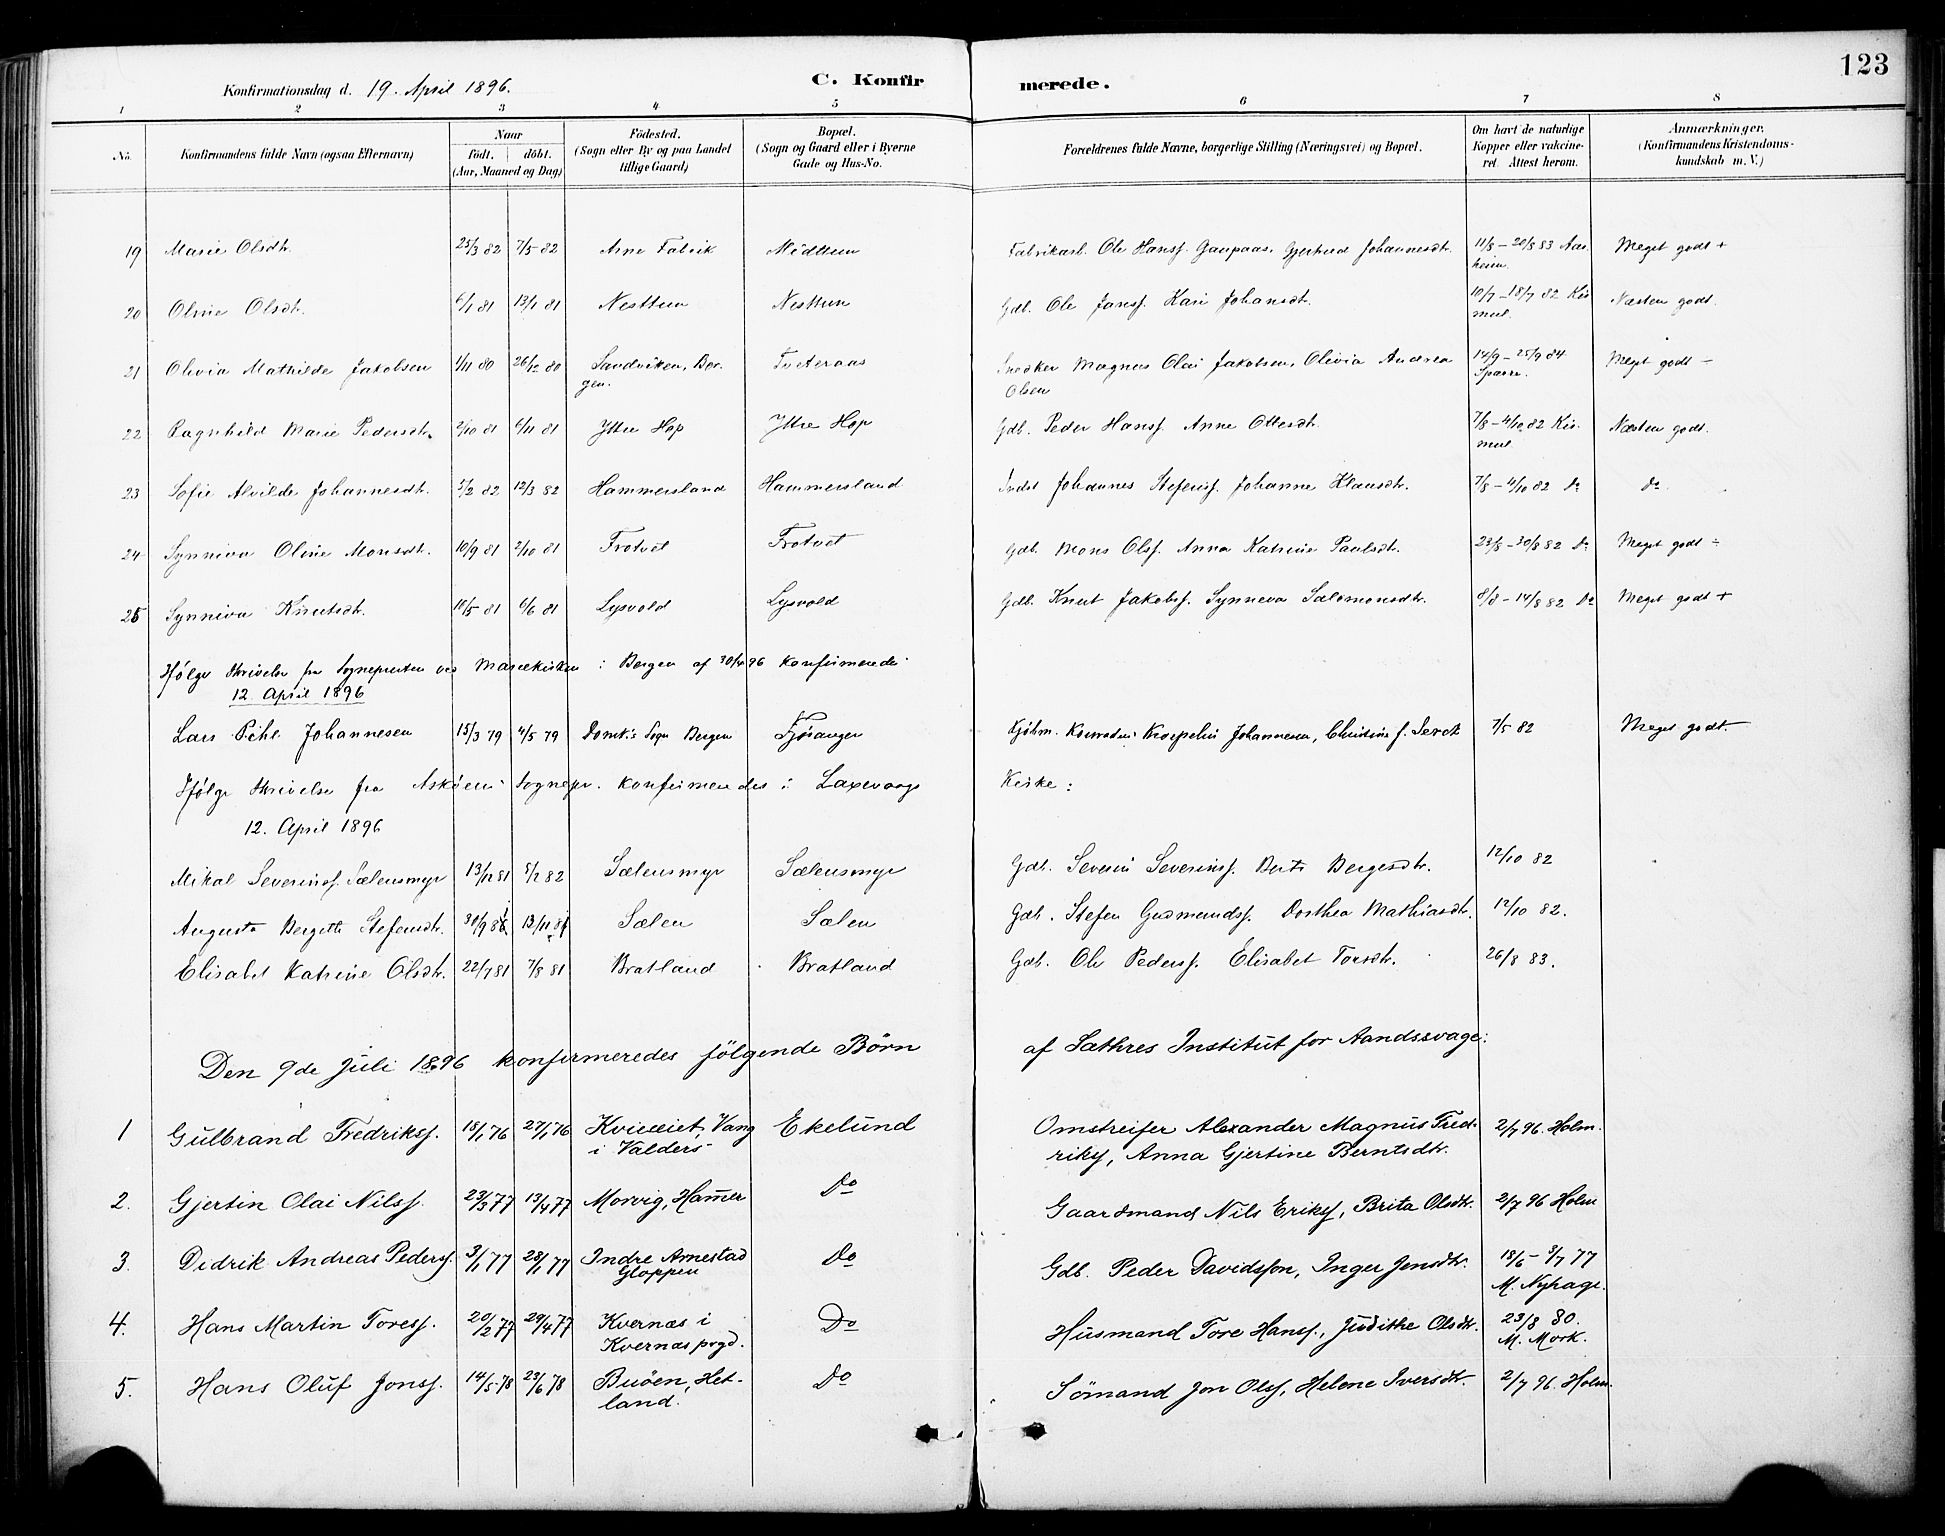 123
Konfirmationsdag d. 19. April 1896.
C. Konfirmerede.
1 2 3 4 5 6 7 8
No.
Konfirmandens fulde Navn (ogsaa Efternavn)
Naar
födt. döbt.
(Aar, Maaned og Dag)
Födested.
(Sogn eller By og paa Landet
tillige Gaard)
Bopæl.
(Sogn og Gaard eller i Byerne
Gade og Hus-No.
Forældrenes fulde Navne, borgerlige Stilling (Næringsvei) og Bopæl.
Om havt de naturlige
Kopper eller vakcine-
ret. Attest herom.
Anmærkninger.
(Konfirmandens Kristendoms-
kundskab m. V.)
19 Marie Olsdtr. 25/3 82 7/5 82 Arne Fabrik Midttun Fabrikarb. Ole Hansf. Gaupaas, Gjertrud Johannesdtr. 11/8 – 20/8 83 Aas-
heim. Meget godt +
20 Oline Olsdtr. 6/1 81 13/1 81 Nesttun Nesttun Gdb. Ole Jansf. Kari Johansdtr. 10/7 – 18/7 82 Kis
mul. Næsten godt.
21 Olivia Mathilde Jakobsen 1/11 80 26/12 80 Sandviken, Ber-
gen. Tveteraas Snedker Magnus Olai Jakobsen, Olivia Andrea
Olsen 14/9 – 25/9 84
Sparre. Meget godt –
22 Ragnhild Marie Pedersdtr. 2/10 81 6/11 81 Ytre Hop Ytre Hop Gdb. Peder Hansf. Anne Ottesdtr. 7/8 – 4/10 82 Kis-
mul. Næsten godt.
23 Sofie Alvilde Johannesdtr. 5/2 82 12/3 82 Hammersland Hammersland Indst Johannes Stefensf. Johanne Klausdtr. 7/8 – 4/10 82 Do Do
24 Synniva Oline Monsdtr. 10/9 81 2/10 81 Trotvet Trotvet Gdb. Mons Olsf. Anna Katrine Paulsdtr. 23/8 – 30/8 82 Do Meget godt ÷
25 Synniva Knutsdtr. 10/5 81 6/6 81 Lysvold Lysvold Gdb. Knut Jakobsf. Synneva Salomonsdtr. 8/8 – 14/8 82 Do Meget godt +
Ifølge Skrivelse fra Sognepresten ved Mariekirken i Bergen af 30/4 96 konfirmeredes
12. April 1896
Lars Pihl Johannesen 15/3 79 4/5 79 Domk's Sogn Bergen Fjøsanger Kjøbm. Johannesen, Christine f. 7/5 82 Meget godt.
Ifølge Skrivelse fra Askøens Sognepr. konfirmeredes i Laxevaags Kirke:
12. April 1896
Mikal Severinsf. Sælensmyr 13/12 81 5/2 82 Sælensmyr Sælensmyr Gdb. Severin Severinsf. Berte Bergesdtr. 12/10 82
Augusta Bergette Stefensdtr. 30/9 81 13/11 81 Sælen Sælen Gdb. Stefen Gudmundsf. Dorthea Mathiasdtr. 12/10 82.
Elisabet Katrine Olsdtr. 22/7 81 7/8 81 Bratland Bratland Gdb. Ole Pedersf. Elisabet Torsdtr. 26/8 83.
Den 9de Juli 1896 konfirmeredes følgende Börn af Sæthres Institut for Aandssvage:
1 Gulbrand Fredriksf. 18/1 76 27/1 76 Vang
i Valders Ekelund Omstreifer Alexander Magnus Fred-
riksf, Anna Gjertine Berntsdtr. 2/7 96. Holm.
2. Gjertin Olai Nilsf. 23/3 77 13/4 77 Morvig, Hamer Do Gaardmand Nils Eriksf, Brita Olsdtr. 2/7 96 Holm
3. Didrik Andreas Pedersf. 3/1 77 28/1 77 Indre Arnestad
Gloppen Do Gdb. Peder Davidsfon, Inger Jensdtr. 18/6 – 3/7 77
M. Nyhage.
4. Hans Martin Toresf. 20/2 77 29/4 77 Kvernæs i
Kvernæs prgd. Do Husmand Tore Hansf., Judithe Olsdtr. 23/8 80.
M. Mork.
5. Hans Oluf Jonsf. 14/5 78 23/6 78 Buöen, Het-
land. Do Sömand Jon Olsf, Helene Iversdtr. 2/7 96. Holm.